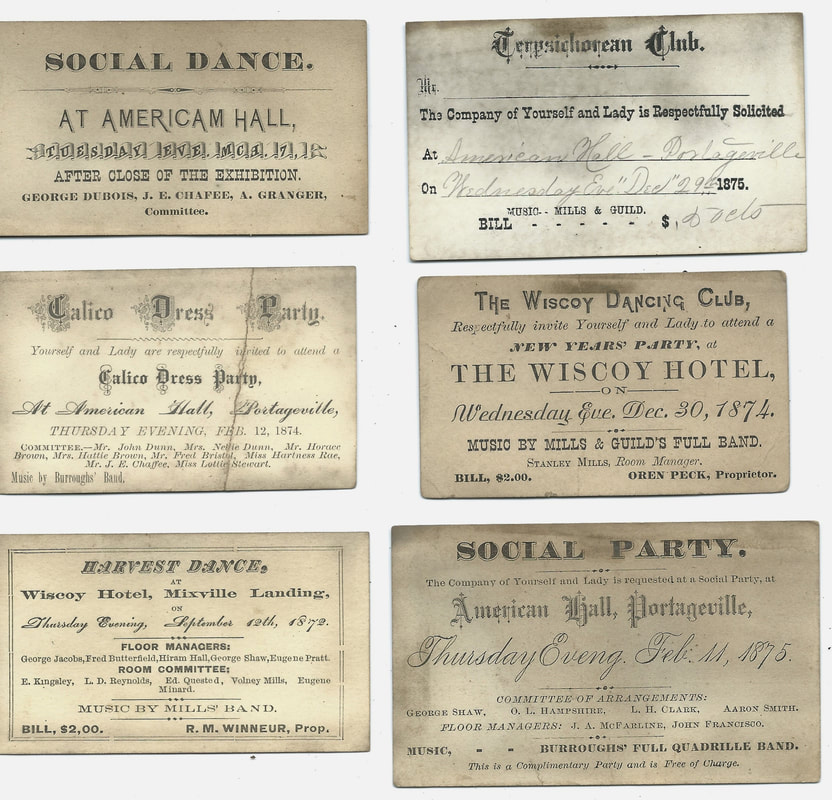 SOCIAL DANCE.
AT AMERICAM HALL,
TUESDAY EVE. MCH. 17,
AFTER CLOSE OF THE EXHIBITION.
GEORGE DUBOIS, J. E. CHAFEE, A. GRANGER,
Committee.
Terpsichorean Club.
Mr.
The Company of Yourself and Lady is Respectfully Solicited
At American Hall - Portageville
On Wednesday Eve "Dec" 29th 1875.
MUSIC-- MILLS & GUILD.
BILL - - - - - $, cts
Calico Dress Party.
Yourself and Lady are respectfully invited to attend a
Calico Dress Party,
At American Hall, Portageville,
THURSDAY EVENING, FEB. 12, 1874.
COMMITTEE.—Mr. John Dunn, Mrs. Nettie Dunn, Mr. Horace
Brown, Mrs. Hattie Brown, Mr. Fred Bristol, Miss Hartness Rae,
Mr. J. E. Chaffee, Miss Lottie Stewart.
Music by Burroughs' Band.
THE WISCOY DANCING CLUB,
Respectfully invite Yourself and Lady to attend a
NEW YEARS' PARTY, at
THE WISCOY HOTEL,
ON
Wednesday Eve. Dec. 30, 1874.
MUSIC BY MILLS & GUILD'S FULL BAND.
STANLEY MILLS, Room Manager.
BILL, $2.00. OREN PECK, Proprietor.
HARVEST DANCE,
AT
Wiscoy Hotel, Mixville Landing,
ON
Thursday Evening, September 12th, 1872.
FLOOR MANAGERS:
George Jacobs, Fred Butterfield, Hiram Hall, George Shaw, Eugene Pratt.
ROOM COMMITTEE:
E. Kingsley, L. D. Reynolds, Ed. Quested, Volney Mills, Eugene
Minard.
MUSIC BY MILLS' BAND.
BILL, $2,00. R. M. WINNEUR, Prop.
SOCIAL PARTY.
The Company of Yourself and Lady is requested at a Social Party, at
American Hall, Portageville,
Thursday Eveng. Feb. 11, 1875.
COMMITTEE OF ARRANGEMENTS:
GEORGE SHAW, O. L. HAMPSHIRE, L. H. CLARK, AARON SMITH.
FLOOR MANAGERS: J. A. McFARLINE, JOHN FRANCISCO.
MUSIC, - - BURROUGHS' FULL QUADRILLE BAND.
This is a Complimentary Party and is Free of Charge.